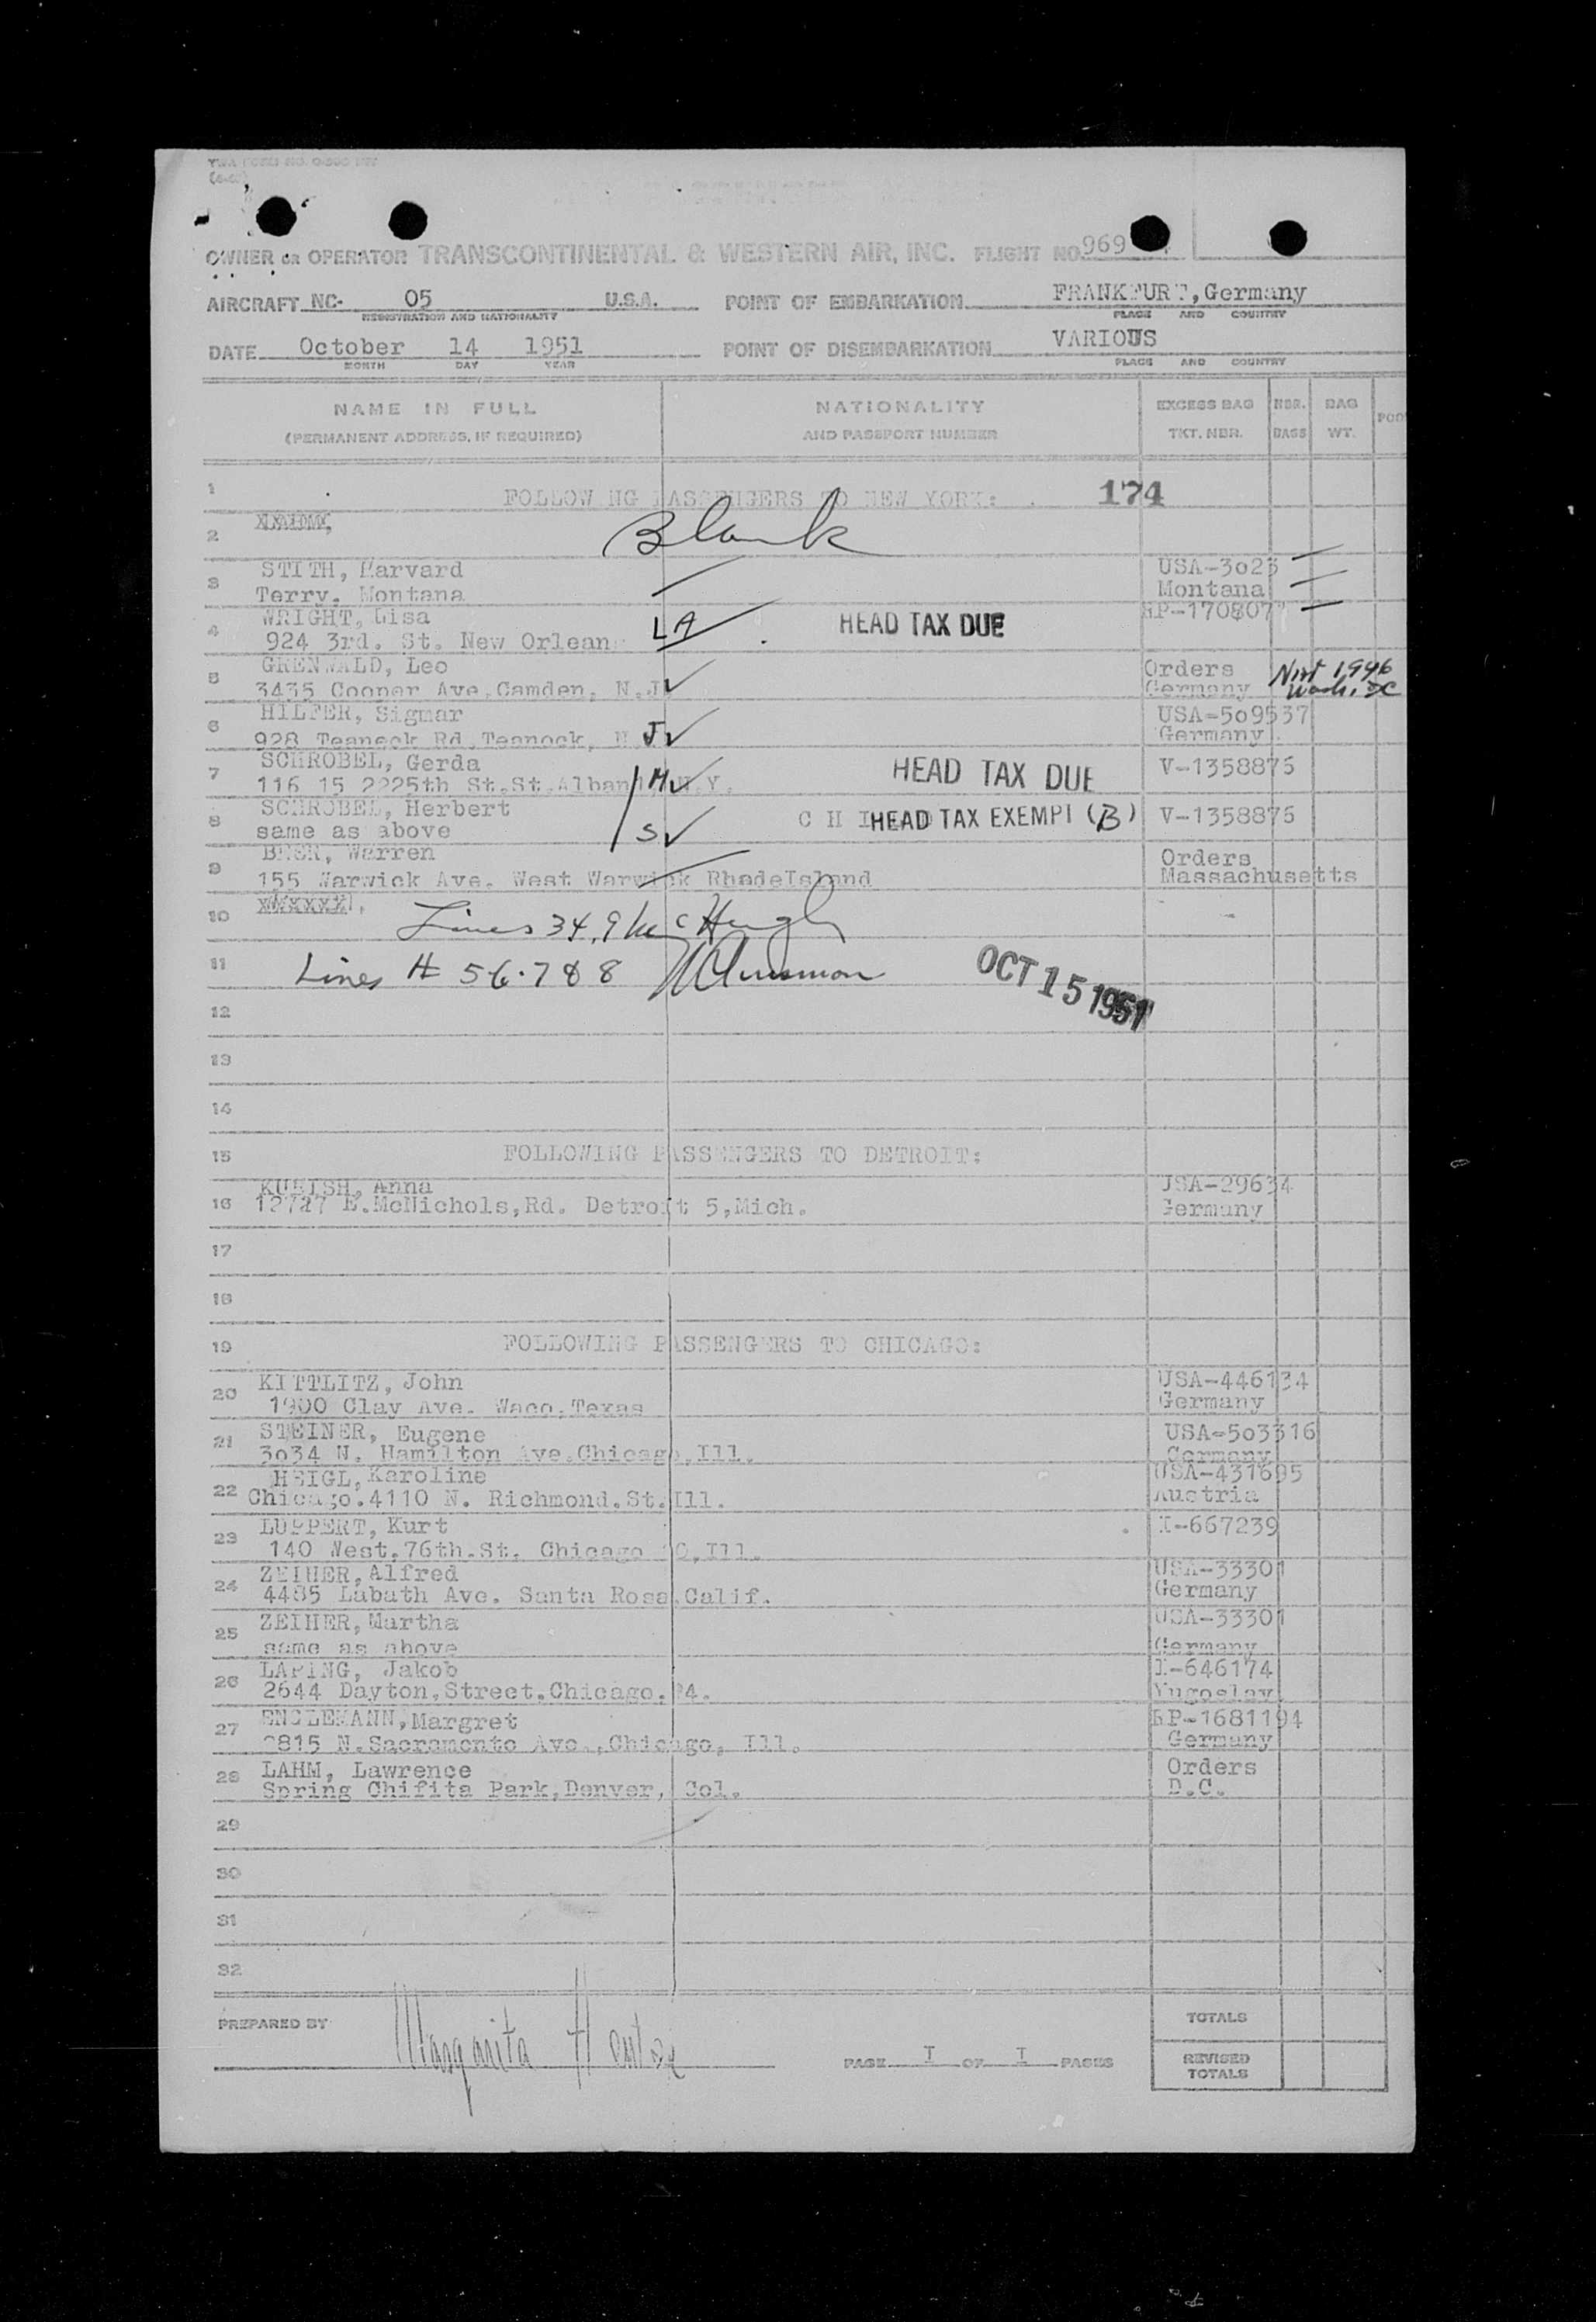 OWNER OR OPERATOR TRANSCONTINENTAL & WESTERN AIR, INC. FLIGHT NO. 969
AIRCRAFT NC- 05 U.S.A. POINT OF EMBARKATION FRANKFURT, Germany
REGISTRATION AND NATIONALITY PLACE AND COUNTRY
DATE October 14 1951 POINT OF DISEMBARKATION VARIOUS
MONTH DAY YEAR PLACE AND COUNTRY
NAME IN FULL NATIONALITY EXCESS BAG NBR. BAG
(PERMANENT ADDRESS, IF REQUIRED) AND PASSPORT NUMBER TKT. NBR. BAGS WT.
1 FOLLOWING PASSENGERS TO NEW YORK: 174
2 Blank
3 STITH, Harvard USA-3023
Terry, Montana Montana
4 WRIGHT, Lisa LA HEAD TAX DUE RP-170807
924 3rd. St. New Orlean
5 GRENWALD, Leo Orders Nat 1946
3435 Cooper Ave, Camden, N.J. Germany Wash. DC
6 HILFER, Sigmar USA-509537
928 Teaneck Rd. Teanock, N J Germany
7 SCHROBEL, Gerda M HEAD TAX DUE V-1358875
116 15 2225th St. St. Alban N.Y.
8 SCHROBEL, Herbert S HEAD TAX EXEMPT (B) V-1358876
same as above
9 Warren Orders
155 Warwick Ave. West Warwick RhodeIsland Massachusetts
10 Lines 34,9 McHugh
11 Lines # 56.788 OCT 15 1951
12
13
14
15 FOLLOWING PASSENGERS TO DETROIT:
Anna USA-29634
16 12727 E.McNichols,Rd. Detroit 5,Mich. Germany
17
18
19 FOLLOWING PASSENGERS TO CHICAGO:
20 KITTLITZ, John USA-446134
1900 Clay Ave. Waco,Texas Germany
21 STEINER, Eugene USA-503316
3034 N. Hamilton Ave.Chicago,Ill. Germany
22 HEIGL, Karoline USA-431695
Chicago.4110 N. Richmond.St.Ill. Austria
23 LUPPERT, Kurt I-667239
140 West.76th.St. Chicago 20,Ill.
24 ZEIHER, Alfred USA-33301
4485 Labath Ave. Santa Rosa Calif. Germany
25 ZEIHER, Martha USA-33301
same as above Germany
26 LAPING, Jakob I-646174
2644 Dayton,Street.Chicago. 4. Yugoslav
27 ENGLEMANN, Margret RP-1681194
2815 N.Sacramento Ave.,Chicago, Ill. Germany
28 LAHM, Lawrence Orders
Spring Chifita Park,Denver, Col. D.C.
29
30
31
32
PREPARED BY Margarita TOTALS
PAGE I OF I PAGES REVISED TOTALS